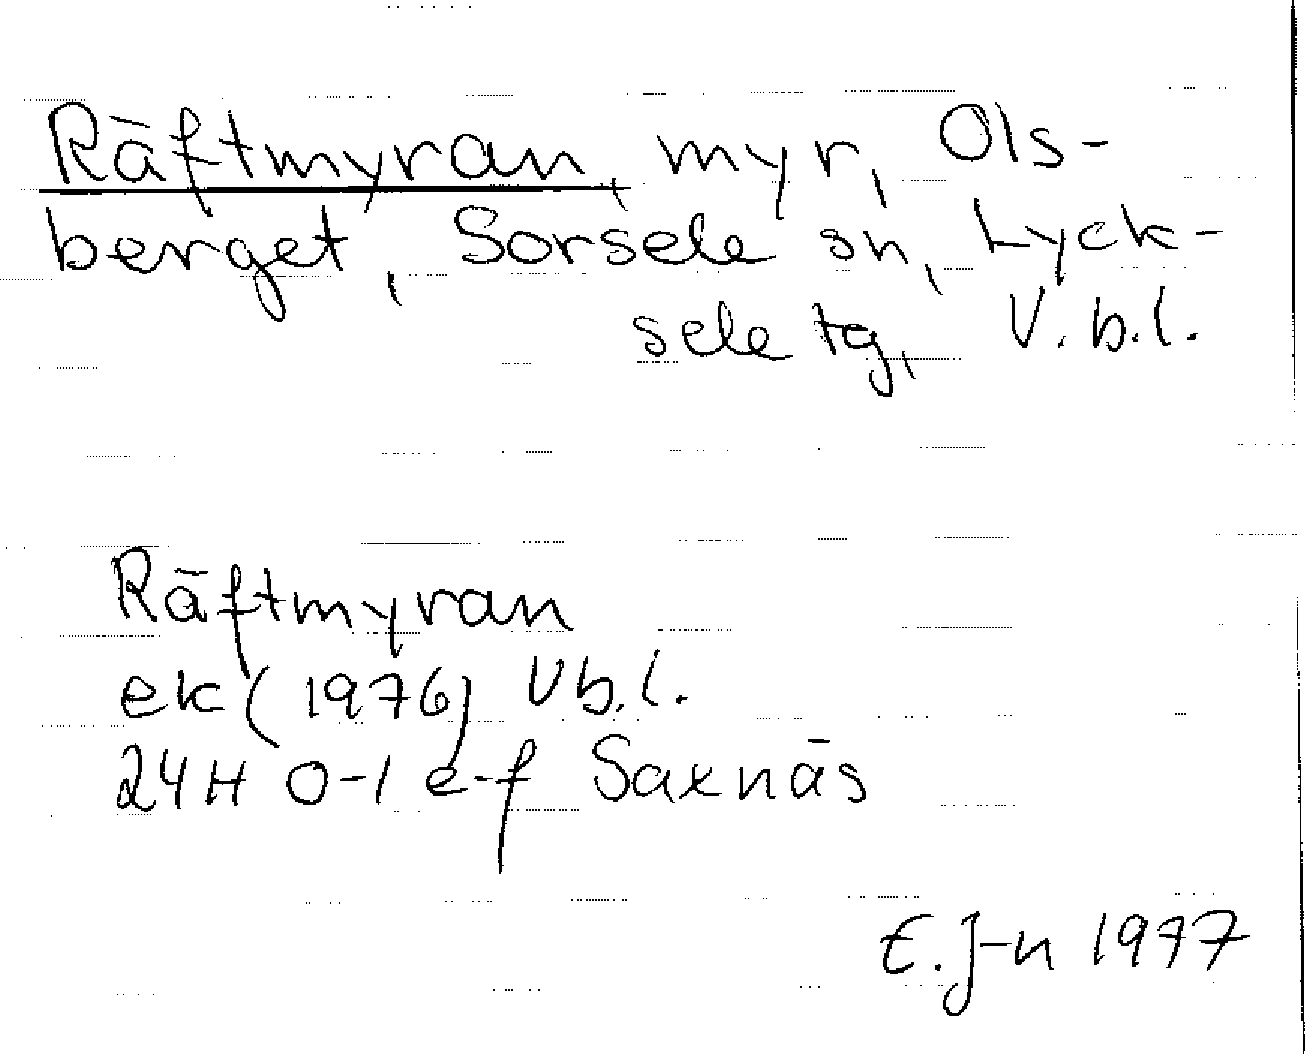 Räftmyran, myr, Ols-
berget, Sorsele sn, Lyck-
sele tg, V.b.l.
Räftmyran
ek (1976) Vb.l.
24H 0-1 e-f Saxnäs
E.J-n 1977